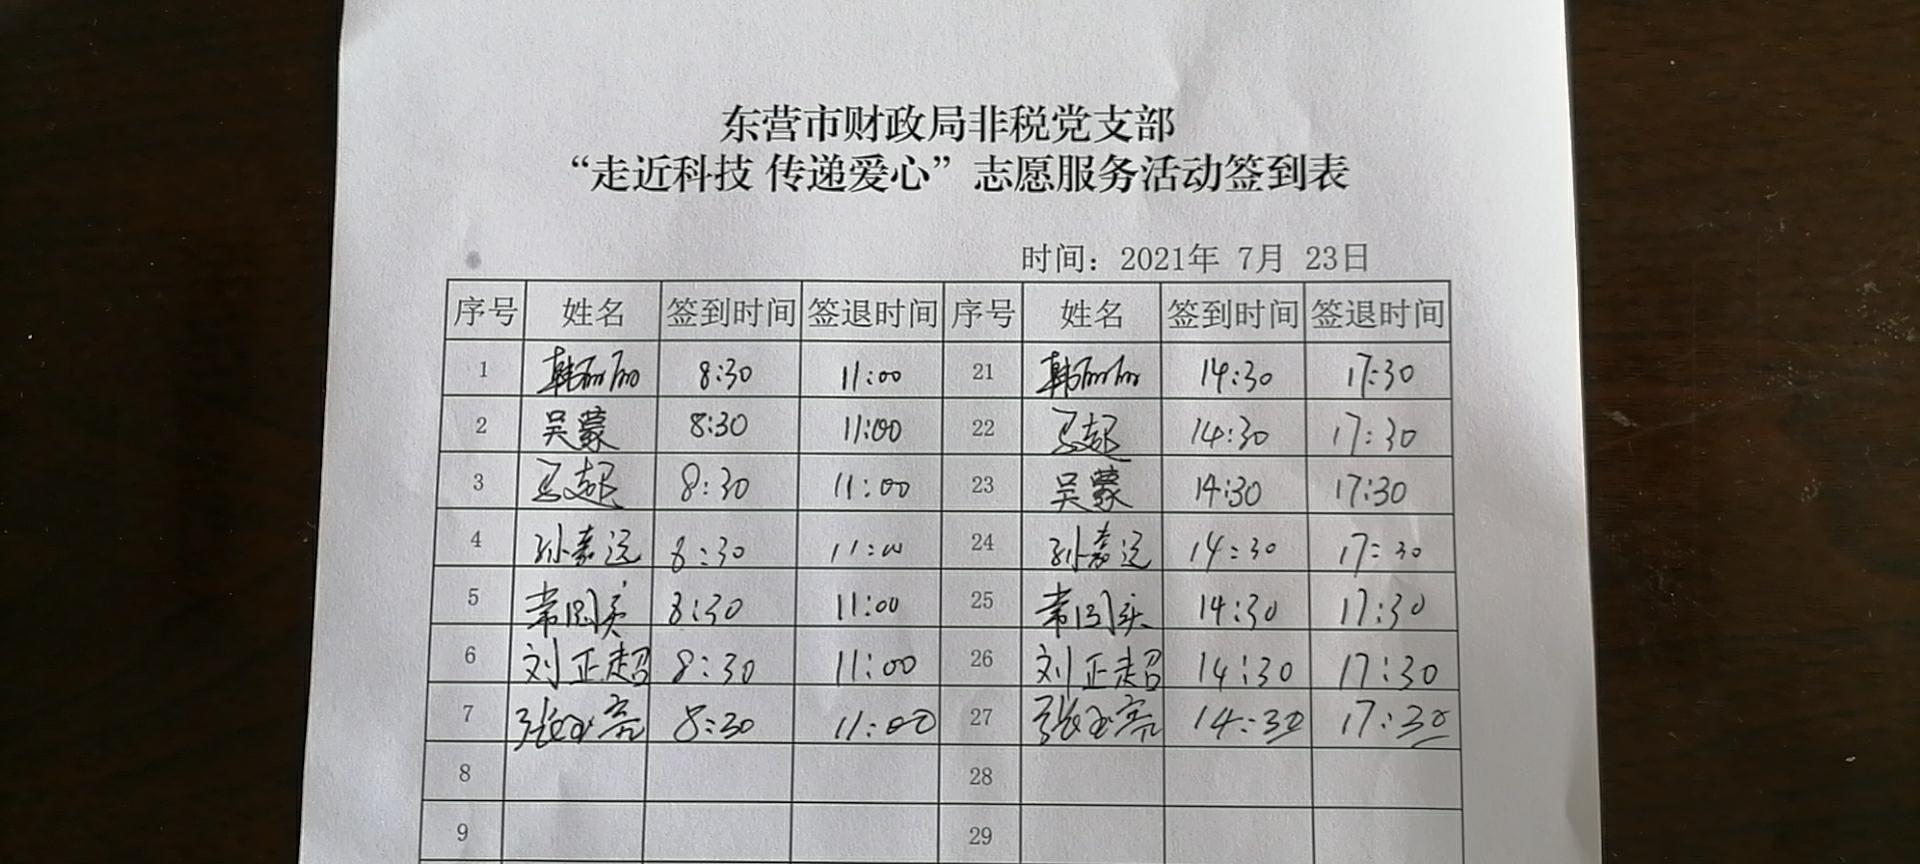 东营市财政局非税党支部
“走近科技 传递爱心”志愿服务活动签到表
时间：2021年 7月 23日
序号 姓名 签到时间 签退时间 序号 姓名 签到时间 签退时间
1 韩丽丽 8:30 11:00 21 韩丽丽 14:30 17:30
2 吴蒙 8:30 11:00 22 14:30 17:30
3 8:30 11:00 23 吴蒙 14:30 17:30
4 孙嘉远 8:30 11:00 24 孙嘉远 14:30 17:30
5 8:30 11:00 25 14:30 17:30
6 刘正超 8:30 11:00 26 刘正超 14:30 17:30
7 8:30 11:00 27 14:30 17:30
8 28
9 29